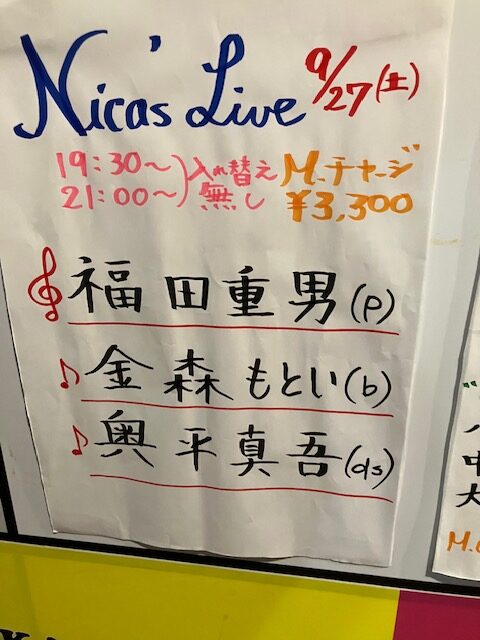 Nica's Live 9/27(土)
19:30〜
21:00〜
入れ替え
無し
M.チャージ
¥3,300
福田重男(p)
金森もとい(b)
奥平真吾(ds)
中
大